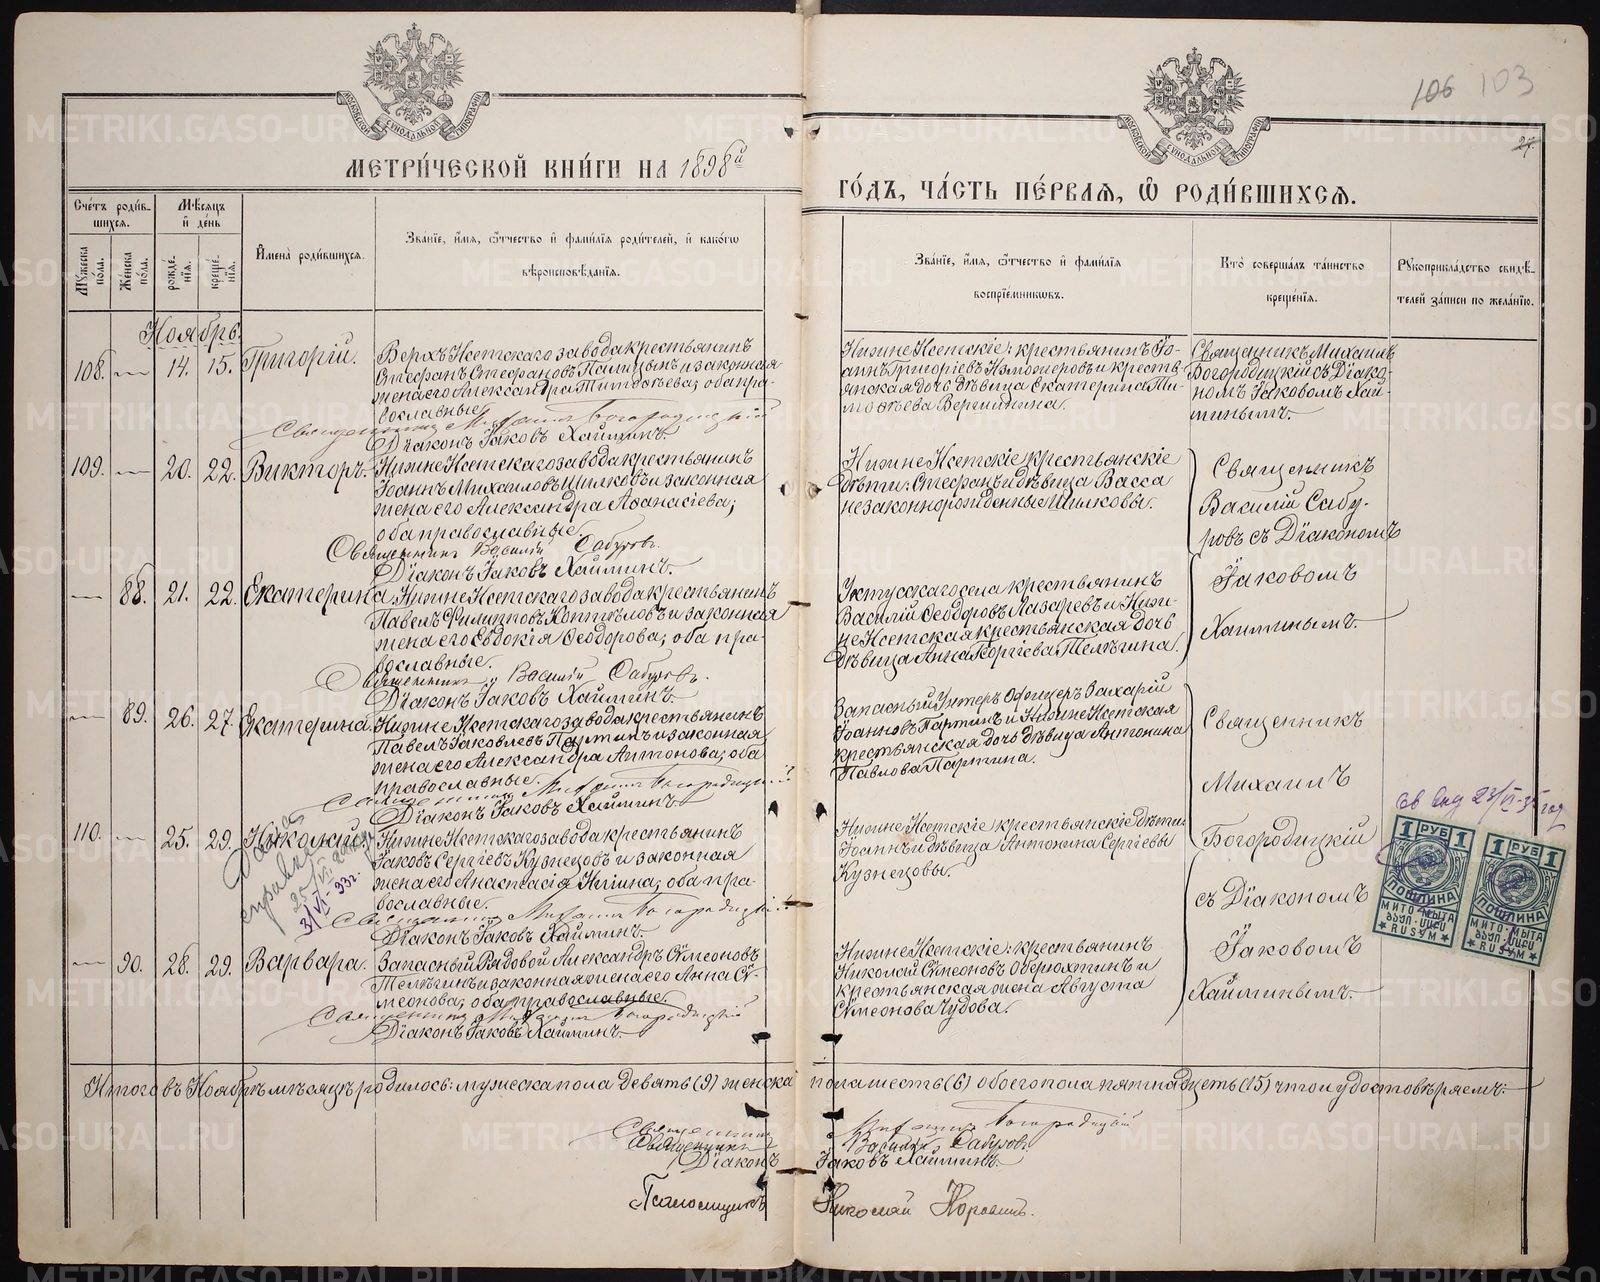 106 103
27.
МЕТРИ́ЧЕСКОЙ КНИ́ГИ НА 1898й
ГО́ДЪ, ЧА́СТЬ ПЕ́РВАЯ, Ѡ РОДИ́ВШИХСЯ.
Сче́тъ роди́вшихся.
Мѣсяцъ и де́нь
Мꙋжеска по́ла.
Же́нска по́ла.
рожде́нїя.
креще́нїя.
Имена̀ роди́вшихся.
Зва́нїе, и́мя, ѻ҆́тчество и фами́лїя роди́телей, и како́гѡ
вѣроисповѣ́данїя.
Зва́нїе, и́мя, ѻ҆́тчество и фами́лїя
воспрїе́мникѡвъ.
Кто̀ соверша́лъ та́инство
креще́нїя.
Рꙋкоприкла́дство свидѣ́-
телей за́писи по жела́нїю.
Ноябрь.
108. — 14. 15. Григорій.
Верхъ Исетскаго завода крестьянинъ
Стефанъ Стефановъ Палицынъ и законная
жена его Александра Тимофеева; оба пра-
вославные.
Священникъ Михаилъ Богородицкій
Діаконъ Іаковъ Хайминъ.
Нижне Исетскіе: крестьянинъ Іо-
аннъ Григоріевъ Изможеровъ и кресть-
янская дочь дѣвица Екатерина Ти-
моѳеева Вершинина.
Священникъ Михаилъ
Богородицкій съ Діако-
номъ Іаковомъ Хай-
минымъ.
109. — 20. 22. Викторъ.
Нижне Исетскаго завода крестьянинъ
Іоаннъ Михаиловъ Шилковъ и законная
жена его Александра Аѳанасіева;
оба православные.
Священникъ Василій Сабуровъ.
Діаконъ Іаковъ Хайминъ.
Нижне Исетскіе крестьянскіе
дѣти: Стефанъ и дѣвица Васса
незаконнорожденные Шилковы.
Священникъ
Василій Сабу-
ровъ съ Діакономъ
Іаковомъ
Хайминымъ.
— 88. 21. 22. Екатерина
Нижне Исетскаго завода крестьянинъ
Павелъ Филипповъ Коптѣловъ и законная
жена его Евдокія Ѳеодорова; оба пра-
вославные.
Священникъ Василій Сабуровъ.
Діаконъ Іаковъ Хайминъ.
Уктусскаго села крестьянинъ
Василій Ѳеодоровъ Лазаревъ и Ниж-
не Исетская крестьянская дочь
дѣвица Анна Георгіева Телѣгина.
— 89. 26. 27. Екатерина
Нижне Исетскаго завода крестьянинъ
Павелъ Іаковлевъ Партинъ и законная
жена его Александра Антонова; оба
православные.
Священникъ Михаилъ Богородицкій
Діаконъ Іаковъ Хайминъ.
Запасный Унтеръ Офицеръ Захарій
Іоанновъ Партинъ и Нижне Исетская
крестьянская дочь дѣвица Антонина
Павлова Партина.
Священникъ
Михаилъ
Богородицкій
съ Діакономъ
Іаковомъ
Хайминымъ.
110. — 25. 29. Николай
Нижне Исетскаго завода крестьянинъ
Іаковъ Сергіевъ Кузнецовъ и законная
жена его Анастасія Ильина; оба пра-
вославные.
Священникъ Михаилъ Богородицкій
Діаконъ Іаковъ Хайминъ.
справка
3/VI-33г.
Нижне Исетскіе крестьянскіе дѣти:
Іоаннъ и дѣвица Антонина Сергіевы
Кузнецовы.
1 РУБ 1
ПОШЛИНА
МИТО МЫТА
RUSUM
1 РУБ 1
ПОШЛИНА
МИТО МЫТА
RUSUM
— 90. 28. 29. Варвара.
Запасный Рядовой Александръ Сѵмеоновъ
Телѣгинъ и законная жена его Анна Сѵ-
меонова; оба православные.
Священникъ Михаилъ Богородицкій
Діаконъ Іаковъ Хайминъ.
Нижне Исетскіе: крестьянинъ
Николай Сѵмеоновъ Оверюхтинъ и
крестьянская жена Августа
Сѵмеонова Чудова.
Итого въ Ноябрѣ мѣсяцѣ родилось: мужеска пола девять (9) женска пола шесть (6) обоего пола пятнадцеть (15) что и удостовѣряемъ:
Священникъ Михаилъ Богородицкій
Священникъ Василій Сабуровъ
Діаконъ Іаковъ Хайминъ.
Псаломщикъ Николай Коровинъ.